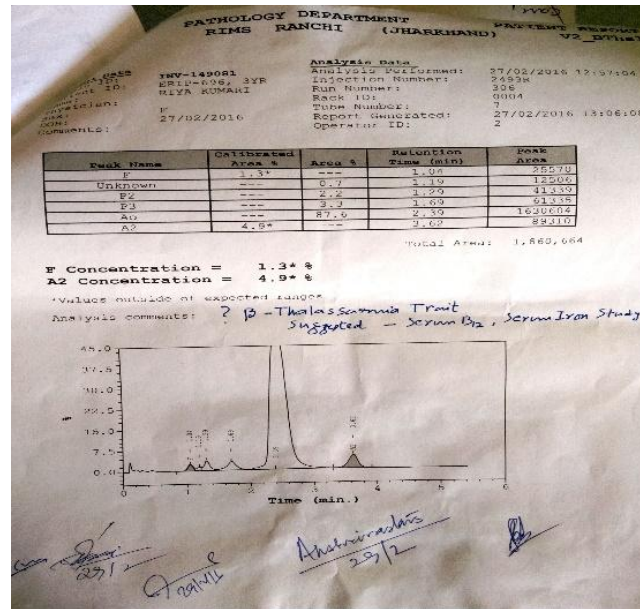 PATHOLOGY DEPARTMENT
RIMS RANCHI (JHARKHAND)
PATIENT REPORT
Analysis Data
INV-149081
Analysis Performed: 27/02/2016 12:57:04
Injection Number:
Run Number: 306
Rack ID: 0004
Tube Number: 7
F
27/02/2016
Report Generated: 27/02/2016 13:06:08
Operator ID: 2
Comments:
Peak Name Calibrated Area % Area % Retention Time (min) Peak Area
F 1.3* --- 1.04 25570
Unknown --- 0.7 1.19 12506
P2 --- 2.2 1.29 41339
P3 --- 3.3 1.69
Ao --- 87.6 2.39 1630604
A2 4.9* --- 3.62 89310
Total Area: 1,860,664
F Concentration = 1.3* %
A2 Concentration = 4.9* %
*Values outside of expected ranges
Analysis comments: ? β-Thalassaemia Trait
Suggested - Serum B12, Serum Iron Study
45.0
37.5
30.0
22.5
15.0
7.5
0.0
0 1 2 3 4 5 6
Time (min.)
29/2
29/2